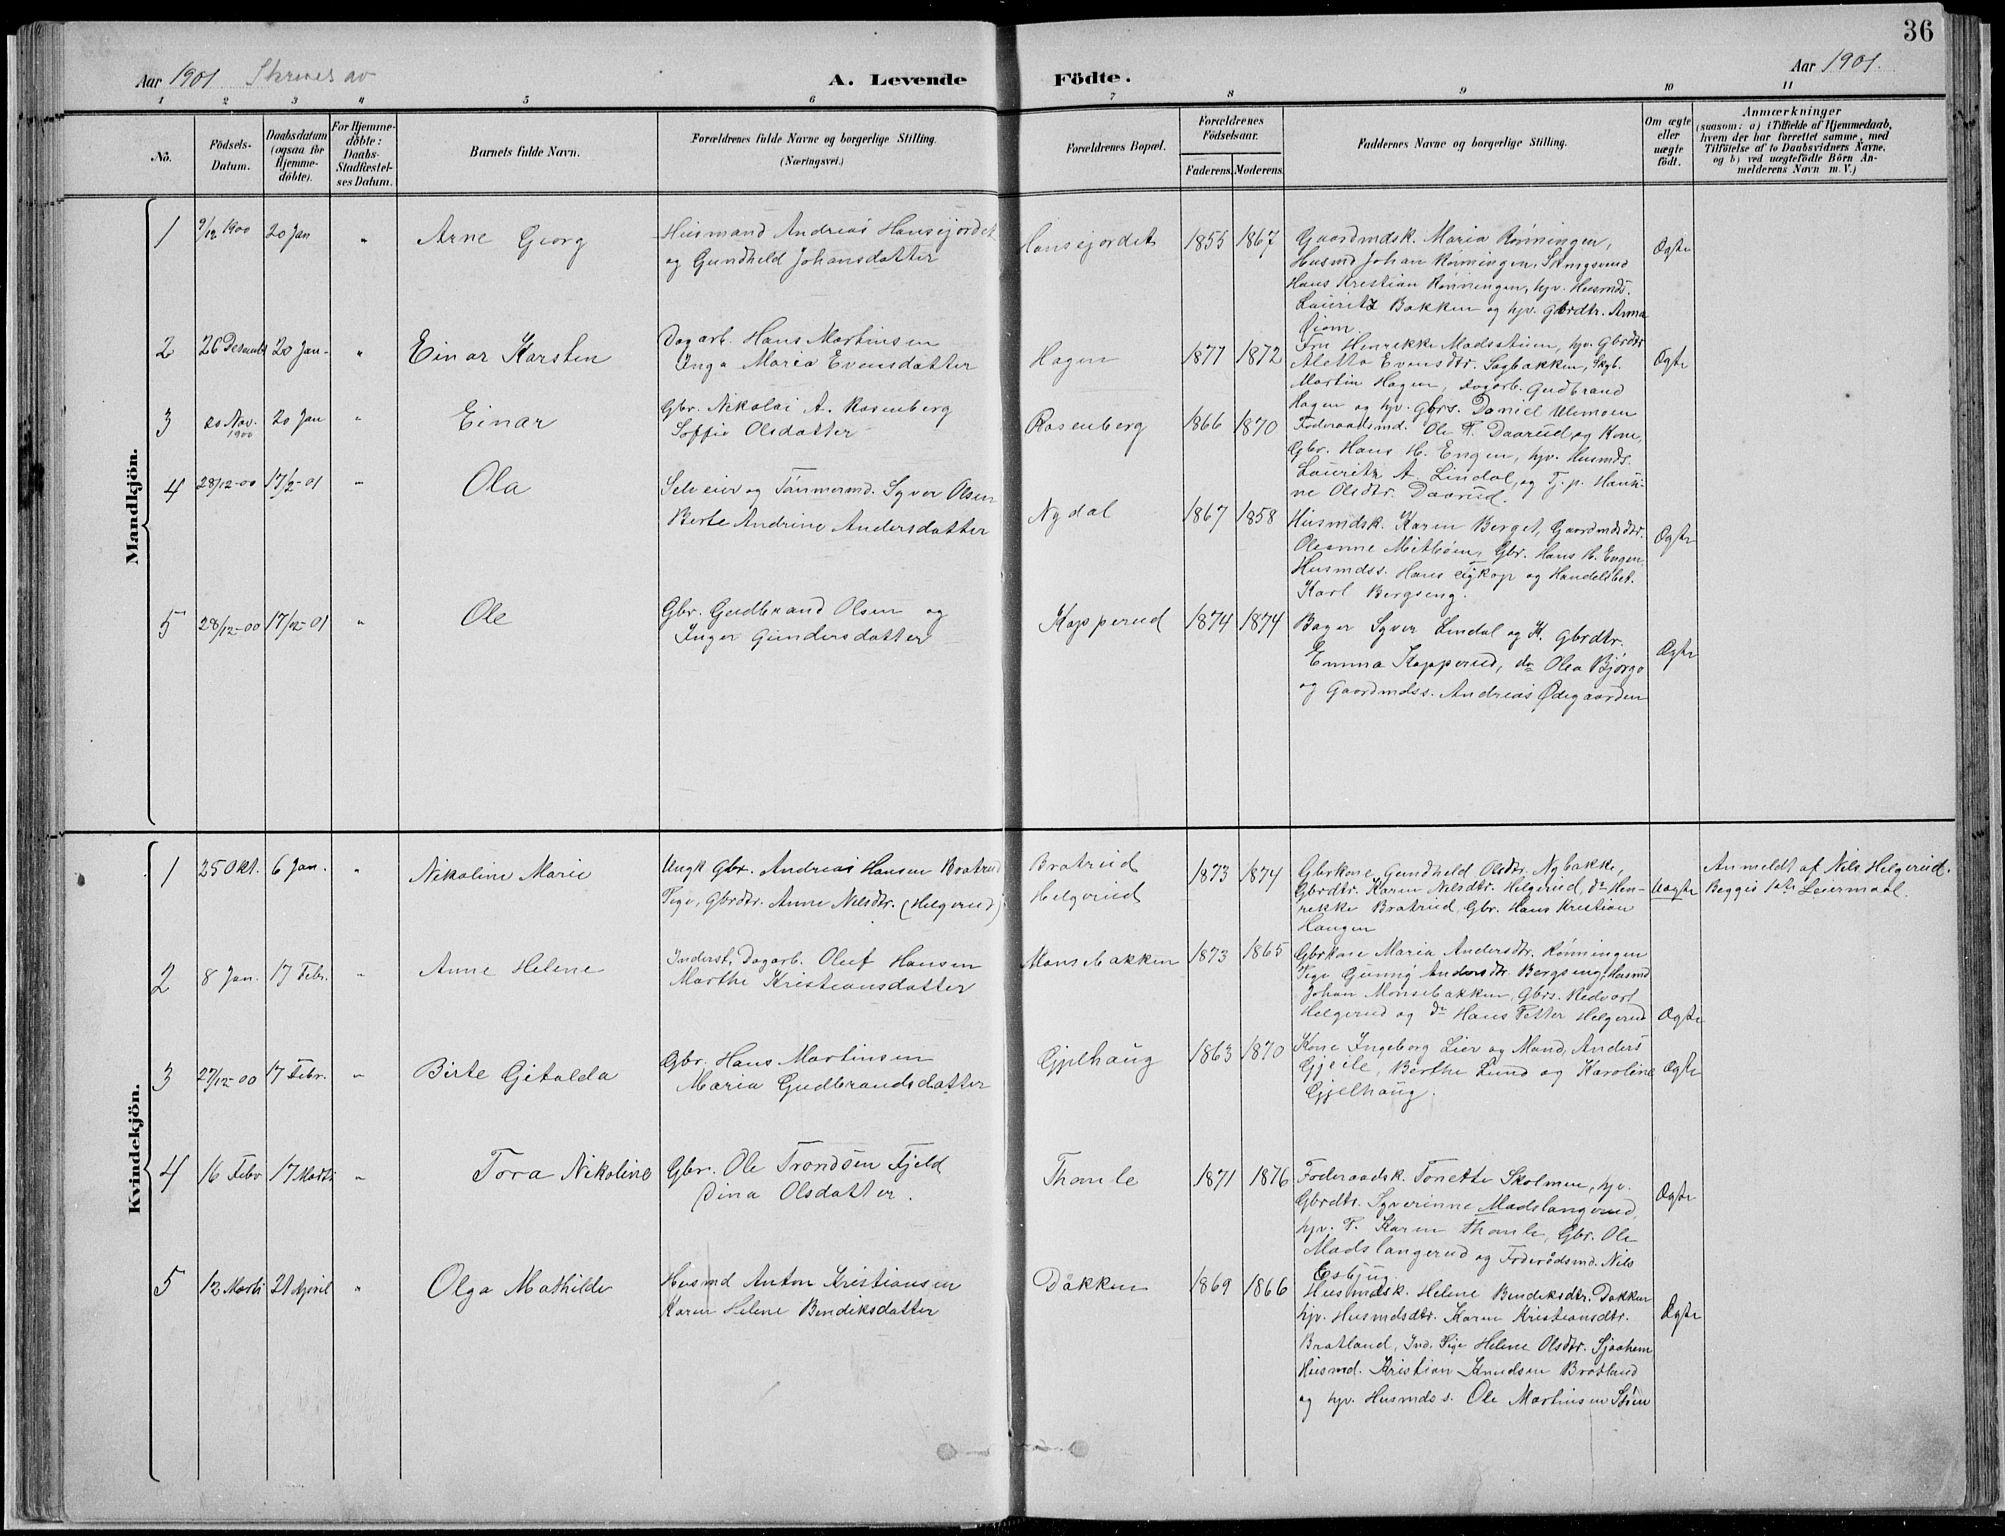 36
Aar 1901
A. Levende Födte.
Aar 1901.
1 2 3 4 5 6 7 8 9 10 11
No.
Födsels-
Datum.
Daabsdatum
(ogsaa for
Hjemme-
döbte).
For Hjemme-
döbte:
Daabs-
Stadfæstel-
ses Datum.
Barnets fulde Navn.
Forældrenes fulde Navne og borgerlige Stilling.
(Næringsvei.)
Forældrenes Bopæl.
Forældrenes
Födselsaar.
Faderens. Moderens.
Faddernes Navne og borgerlige Stilling.
Om ægte
eller
uægte
födt.
Anmærkninger
(saasom: a) i Tilfælde af Hjemmedaab,
hvem der har forrettet samme, med
Tilföielse af to Daabsvidners Navne,
og b) ved uægtefödte Börn An-
melderens Navn m. V.)
Mandkjön.
1 9/12 1900 20 Jan " Arne Georg
Husmand Andreas Hansejordet
og Gundhild Johansdatter
Hansejordet 1855 1867
Gaardmdsk. Maria Rönningen,
Husmd Johan Rönningen,
Hans Kristian Rönningen, hjv. Husmds.
Lauritz Bakken og hjv. Gbrdtr. Anna
Ægte
2 26 Desember 20 Jan. " Einar Karsten
Dagarb. Hans Martinsen
Inga Maria Evensdatter
Hagen 1877 1872
Fru Henrikke Madsstuen, hjv. Gbrdtr
Aletta Evensdtr. Sagbakken, Skgb.
Martin Hagen, Dagarb. Gudbrand
Hagen og hjv. Gbrs. Daniel Ulimoen
Ægte
3 20 Nov. 1900 20 Jan " Einar
Gbr. Nikolai A. Rosenberg
Soffie Olsdatter
Rosenberg 1866 1870
Föderaadsmd. Ole T. Daarud og Kone,
Gbr. Hans H. Engen, hjv. Husmds.
Lauritz A. Lindal, og Tj. p. Hans-
ne Olsdtr. Daarud.
4 28/12-00 17/2-01 " Ola
Selveier og Tömmermd. Syver Olsen
Berte Andrine Andersdatter
Nydal 1867 1858
Husmdsk. Karen Berget, Gaardmdsdtr.
Oleanne Mitböen, Gbr. Hans H. Engen
Husmdss. Hans Nykop og Handelsbet.
Karl Bergseng.
Ægte
5 28/12-00 17/02-01 " Ole
Gbr. Gudbrand Olsen og
Inger Gundersdatter
Kopperud 1874 1874
Bager Syver Lindal og K. Gbrdtr.
Emma Kopperud, do Olea Bjørgo
og Gaardmdss. Andreas Ødegaarden
Ægte
Kvindekjön.
1 25 Okt. 6 Jan. " Nikoline Marie
Ungk Gbr. Andreas Hansen Bratrud
Pige, Gbrdtr. Anne Nilsdtr. (Helgerud)
Bratrud
Helgerud
1873 1874
Gbrkone Gundhild Olsdtr. Nybakke,
Gbrdtr. Karen Nilsdtr. Helgerud, do Hen-
rikke Bratrud, Gbr. Hans Kristian
Haugen
Uægte
Anmeldt af Nils Helgerud.
Begges 1ste Leiermaal
2 8 Jan. 17 Febr. " Anne Helene
Inderst, Dagarb. Oluf Hansen
Marthe Kristiansdatter
Monsebakken 1873 1865
Gbrkone Maria Andersdtr. Rönningen
Pige Gunnig Andersdtr. Bergseng, Husmd
Johan Monsebakken, Gbrs. Redvart
Helgerud og do Hans Petter Helgerud
Ægte
3 27/12-00 17 Febr. " Birte Gitalda
Gbr. Hans Martinsen
Maria Gudbrandsdatter
Gjelhaug 1863 1870
Kone Ingeborg Lier og Mand, Anders
Gjeile, Birthe Lund og Karoline
Gjelhaug.
Ægte
4 16 Febr 17 Marts " Tora Nikoline
Gbr. Ole Trondsen Fjeld
Dina Olsdatter.
Thomle 1871 1876
Foderaadsk. Tonette Skolmen, hjv.
Gbrdtr. Syverinne Madslangerud,
hjv. P. Karen Thomle, Gbr. Ole
Madslangerud og Foderådsmd. Nils
Esbjug
Ægte
5 12 Marts 21 April " Olga Mathilde
Husmd Anton Kristiansen
Karen Helene Bendiksdatter
Dokken 1869 1866
Husmdsk. Helene Bendiksdtr. Dokken
hjv. Husmdsdtr. Karen Kristiansdtr.
Bratland, Ind. Pige Helene Olsdtr. Sjaahem
Husmd. Kristian Knudsen Bratland
og hjv. Husmdss. Ole Martinsen Stuen
Ægte